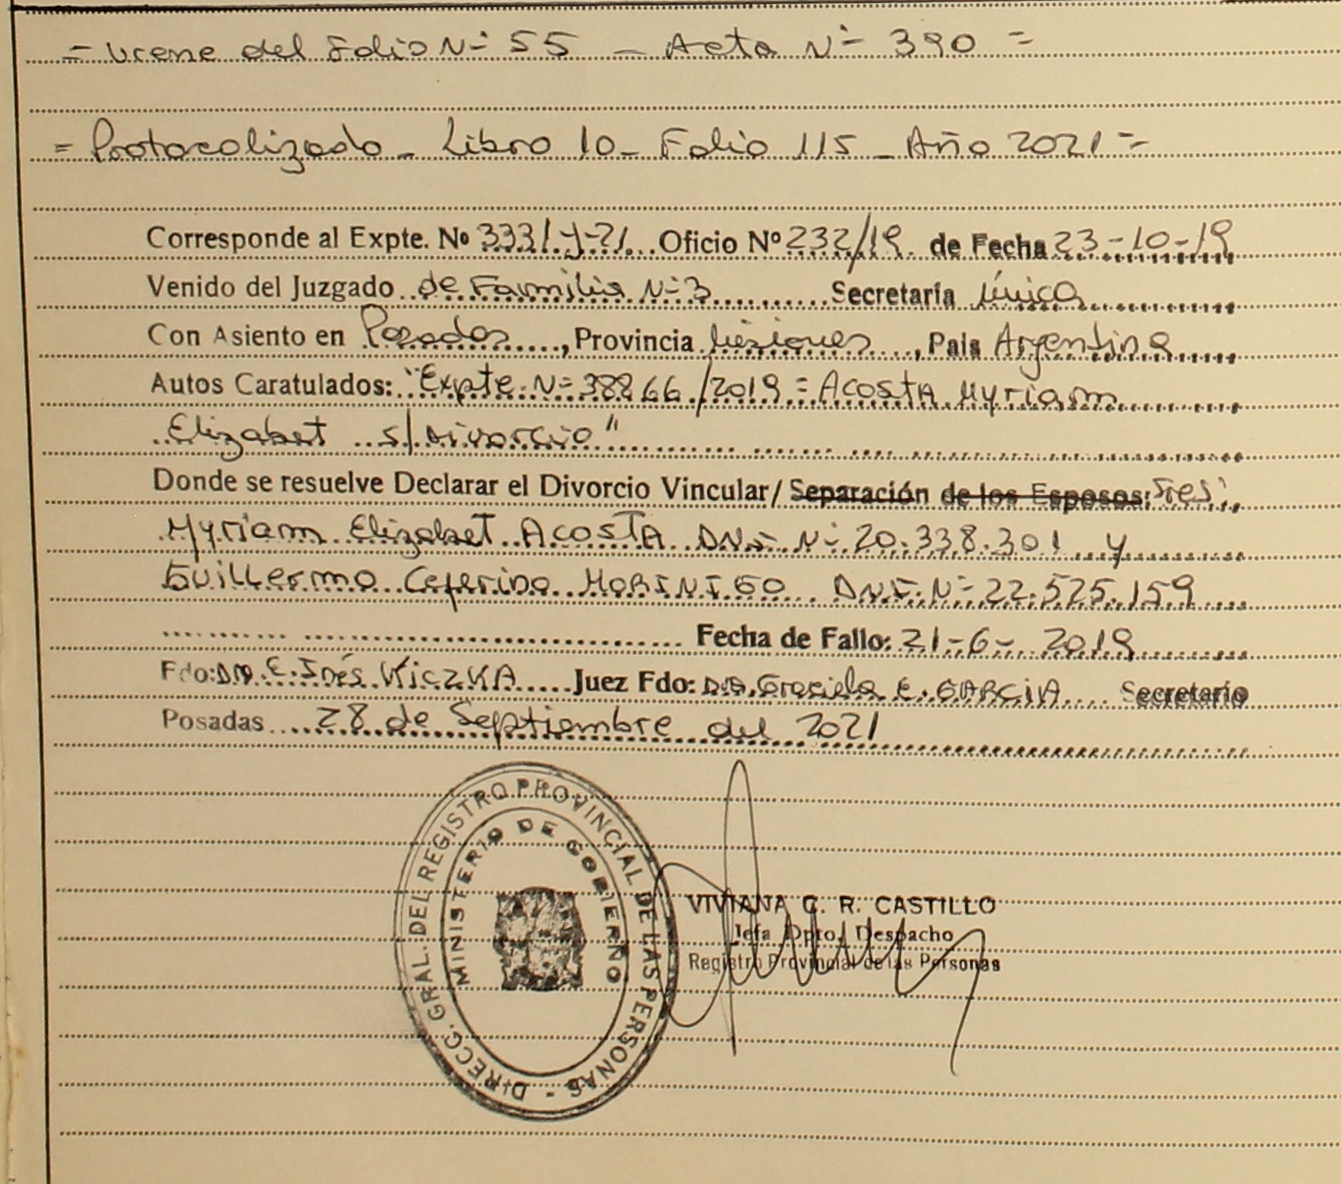 = Viene del Folio Nº 55 - Acta Nº 390 =
= Protocolizado - Libro 10 - Folio 115 - Año 2021 =
Corresponde al Expte. Nº 333/-Y-21 Oficio Nº 232/19 de Fecha 23-10-19
Venido del Juzgado de Familia Nº 3 Secretaría única
Con Asiento en Posadas, Provincia Misiones, País Argentina
Autos Caratulados: "Expte Nº 38866/2019 = ACOSTA Myriam
Elizabet s/Divorcio"
Donde se resuelve Declarar el Divorcio Vincular/ Separación de los Esposos: Sres:
Myriam Elizabet ACOSTA DNI Nº 20.338.301 y
Guillermo Ceferino MORINIGO DNI Nº 22.525.159
Fecha de Fallo: 21-6-2019
Fdo: DRA. C. Inés KICZKA Juez Fdo: DRA. Graciela E. GARCIA Secretario
Posadas 28 de Septiembre del 2021
DIRECC. GRAL. DEL REGISTRO PROVINCIAL DE LAS PERSONAS -
MINISTERIO DE GOBIERNO
VIVIANA C. R. CASTILLO
Jefa Dpto. Despacho
Registro Provincial de las Personas